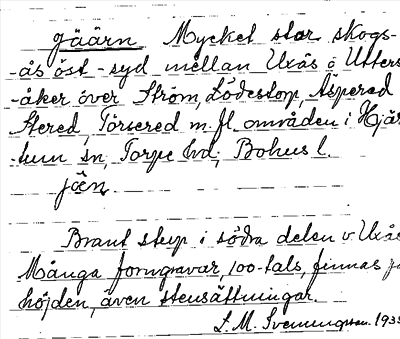 gäärn Mycket stor skogs-
-ås öst-syd mellan Uxås o Utters
-åker över Ström, Lödestorp, Äspered
Stered, Torsered m.fl. områden i Hjär
-tum sn, Torpe hd, Bohus l.
jän.
Brant stup i södra delen v. Uxås
Många forngravar, 100-tals, finnas på
höjden, även stensättningar.
L. M. Svenungsson. 193